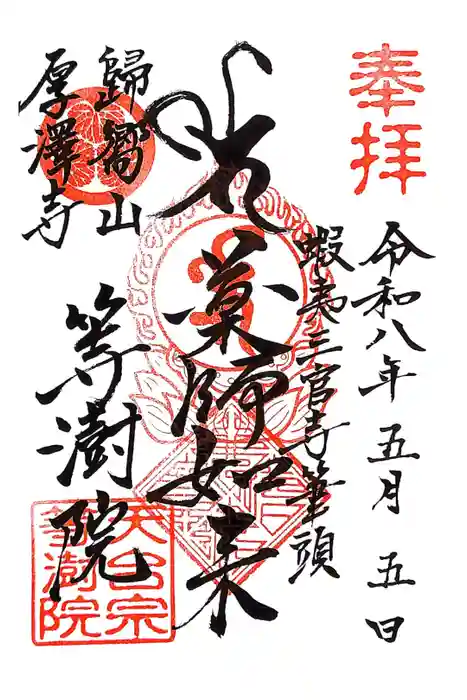 奉拝
令和八年 五月 五日
蝦夷三官寺筆頭
薬師如来
歸嚮山
厚澤寺
等澍院
天台宗
等澍院